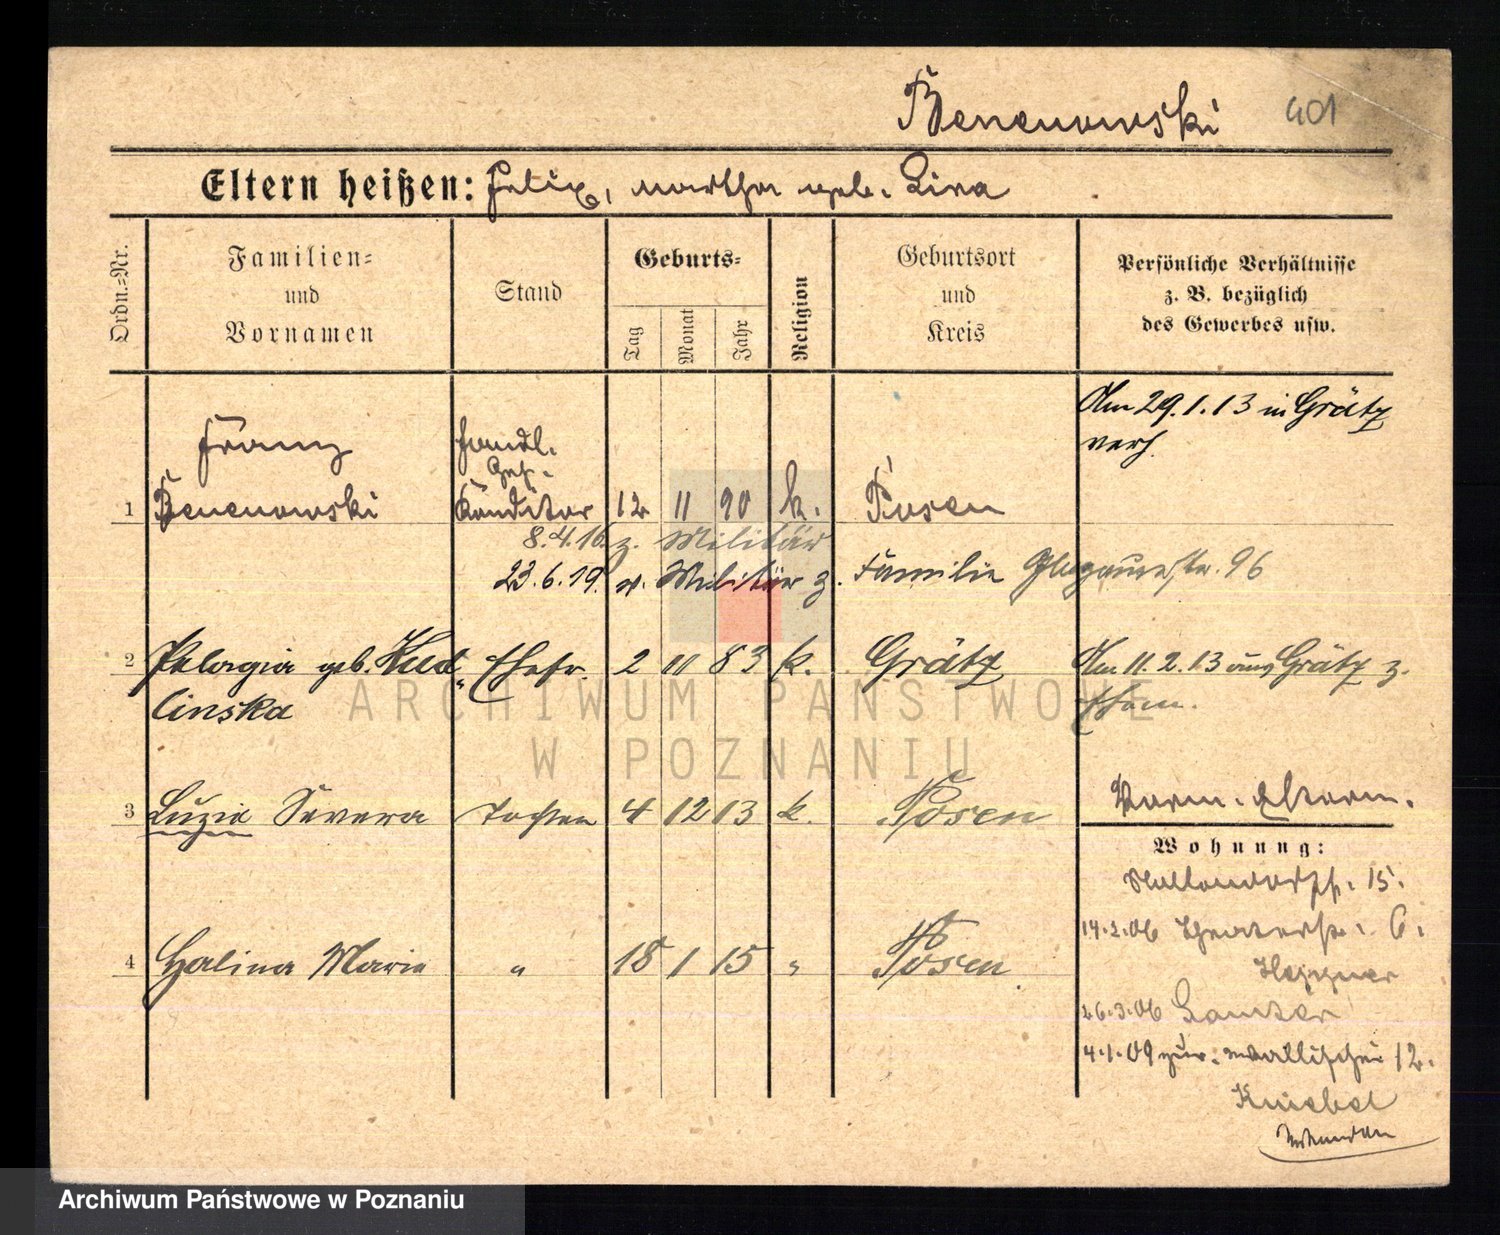 Benenowski 401
Eltern heißen: Felix, Martha geb. Lira
Ordn.=Nr.
Familien=
und
Vornamen
Stand
Geburts=
Tag
Monat
Jahr
Religion
Geburtsort
und
Kreis
Persönliche Verhältnisse
z. B. bezüglich
des Gewerbes usw.
Am 29.1.13 in Grätz
verh.
Franz
Handl.
Geh.
1 Benenowski Konditor 12 11 90 k. Posen
8.4.16. z. Militär
23.6.19. v. Militär z. Familie Glogauerstr. 96
2 Pelagia geb. Kud Ehefr. 2 11 83 k. Grätz Am 11.2.13 aus Grätz z.
linska Ehem.
3 Luzie Severa Tochter 4 12 13 k. Posen
Wohnung:
15.
4 Halina Marie " 18 1 15 " Posen
14.2.06 Theaterstr. 6.
Heppner
26.3.06
4.1.09 zur. Wallischei 12.
Kniebel
ARCHIWUM PAŃSTWOWE
W POZNANIU
Archiwum Państwowe w Poznaniu